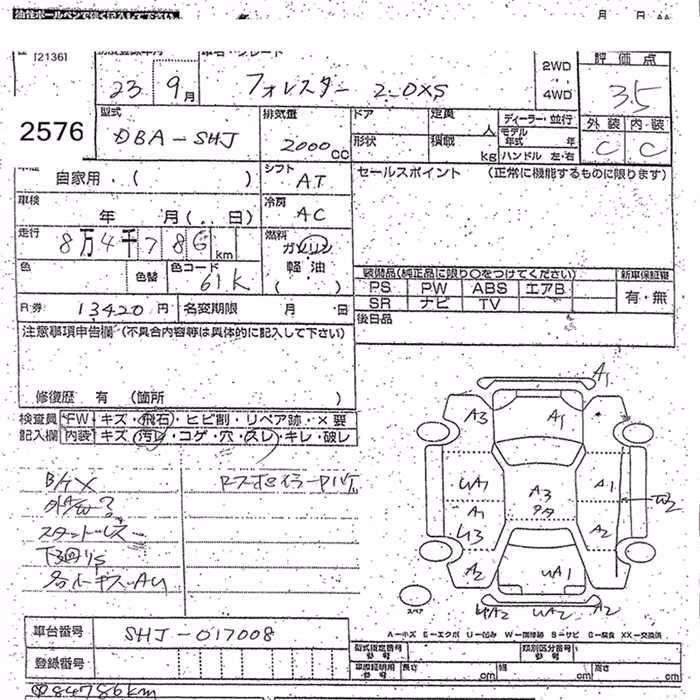 油性ボールペンで強く記入して下さい
月 日
[2136]
初度登録年月 車名・グレード
2WD 4WD
評価点
23 9月 フォレスター 2.0XS
3.5
2576
型式 DBA-SHJ
排気量 2000cc
ドア 定員 人
形状 積載 kg
ディーラー・並行
モデル年式 年
ハンドル 左・右
外装 内装
C C
自家用・( )
シフト AT
セールスポイント (正常に機能するものに限ります)
車検 年 月(・・日)
冷房 AC
走行 8万4千786km
燃料 ガソリン 軽油 ( )
色 色替 色コード 61K
装備品(純正品に限り○をつけてください) 新車保証書
PS PW ABS エアB 有・無
SR ナビ TV
R券 13420円 名変期限 月 日
後日品
注意事項申告欄(不具合内容等は具体的に記入して下さい)
修復歴 有 (箇所 )
検査員 FW・キズ・飛石・ヒビ割・リペア跡・×要
記入欄 内装・キズ・汚レ・コゲ・穴・スレ・キレ・破レ
A1
A3 A1
UA1 A3 A1
A1 W2
U3 A2
A2 UA1 A2
UA2
スタットレス
下回りS
スペア
A-キズ E-エクボ U-凹み W-補修跡 S-サビ C-腐食 XX-交換済
車台番号 SHJ-017008
型式指定番号 類別区分番号
登録番号
車庫証明用参考 長さ cm 幅 cm 高さ cm
84786km